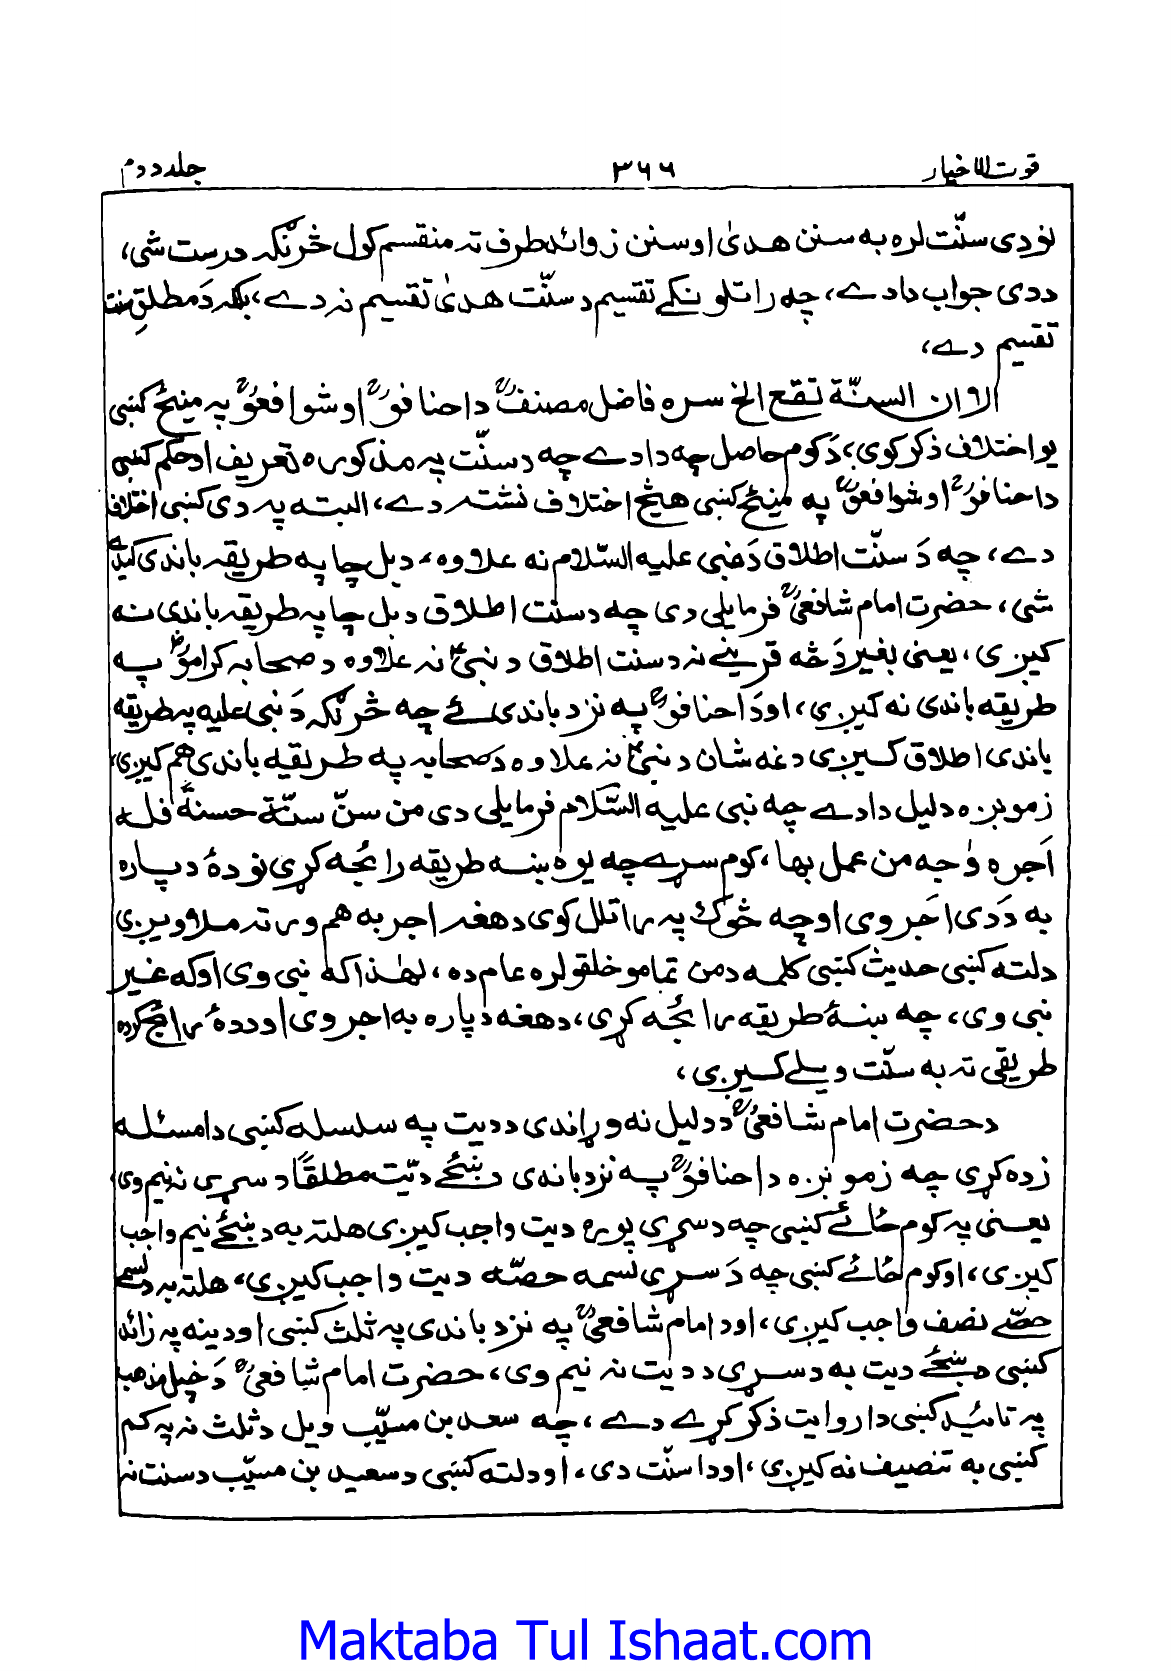 قوت الاخیار ۳۶۶ جلد دوم
نو دی سنّت لره به سنن هدیٰ او سنن زوائد طرف ته منقسم کول څرنګه درست شی،
ددی جواب دا دے، چه را تلونکے تقسیم د سنّت هدیٰ تقسیم نه دے، بلکه دَ مطلقِ سنت
تقسیم دے،
الا ان السنّة تقع الخ سره فاضل مصنفؒ د احنافوؒ او شوافعوؒ په مینځ کښی
یو اختلاف ذکر کوی، دَ کوم حاصل چه دا دے چه د سنّت په مذکوره تعریف او حکم کښی
د احنافوؒ او شوافعوؒ په مینځ کښی هیڅ اختلاف نشته دے، البته په دی کښی اختلاف
دے، چه دَ سنّت اطلاق دَ نبی علیه السّلام نه علاوه، د بل چا په طریقه باندی کیدے
شی، حضرت امام شافعیؒ فرمایلی دی چه د سنت اطلاق د بل چا په طریقه باندی نه
کیږی، یعنی بغیر دَ څه قرینے نه د سنت اطلاق د نبیؑ نه علاوه د صحابه کراموؓ په
طریقه باندی نه کیږی، او دَ احنافوؒ په نزد باندی لکه چه څرنګه دَ نبی علیه په طریقه
باندی اطلاق کیږی دغه شان د نبیؑ نه علاوه دَ صحابه په طریقه باندی هم کیږی،
زمونږه دلیل دا دے چه نبی علیه السّلام فرمایلی دی من سنّ سنّة حسنة فله
اَجره واجر من عمل بها، کوم سړے چه یوه ښه طریقه رائجه کړی نو دهٔ دپاره
به دَدی اَجر وی او چه څوک په دی راتلل کوی دهغه اجر به هم ورته ملاویږی
دلته کښی حدیث کښی کلمه د من تمامو خلقو لره عام ده، لهٰذا که نبی وی او که غیر
نبی وی، چه ښهٔ طریقه رائجه کړی، دهغه دپاره به اجر وی او ددهٔ رائج کړده
طریقی ته به سنّت ویلے کیږی،
د حضرت امام شافعیؒ د دلیل نه وړاندی د دیت په سلسله کښی دا مسئله
زده کړی چه زمونږه د احنافوؒ په نزد باندی د ښځے دیّت مطلقًا د سړی نه نیم وی،
یعنی په کوم ځائے کښی چه د سړی پوره دیت واجب کیږی هلته به د ښځے نیم واجب
کیږی، او کوم ځائے کښی چه دَ سړی لسمه حصّه دیت واجب کیږی، هلته به د لسمے
حصّے نصف واجب کیږی، او د امام شافعیؒ په نزد باندی په ثلث کښی او دینه په زائد
کښی د ښځے دیت به د سړی د دیت نه نیم وی، حضرت امام شافعیؒ دَ خپل مذهب
په تائید کښی دا روایت ذکر کړے دے، چه سعد بن مسیّب ویل د ثلث نه په کم
کښی به تنصیف نه کیږی، او دا سنّت دی، او دلته کښی د سعید بن مسیّب د سنت نه
Maktaba Tul Ishaat.com